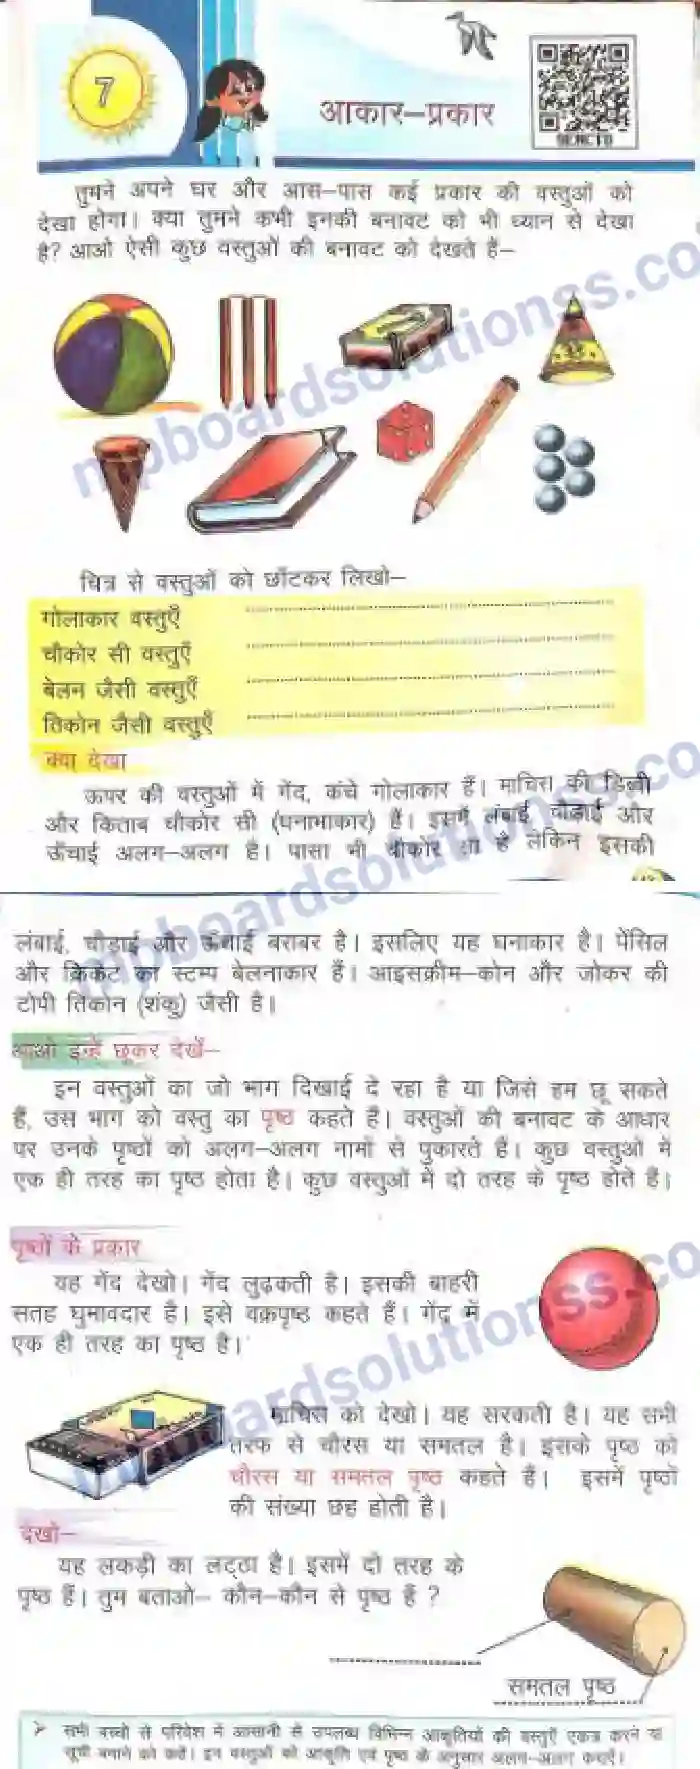 7
आकार–प्रकार
तुमने अपने घर और आस–पास कई प्रकार की वस्तुओं को
देखा होगा। क्या तुमने कभी इनकी बनावट को भी ध्यान से देखा
है? आओ ऐसी कुछ वस्तुओं की बनावट को देखते हैं–
चित्र से वस्तुओं को छाँटकर लिखो–
गोलाकार वस्तुएँ
चौकोर सी वस्तुएँ
बेलन जैसी वस्तुएँ
तिकोन जैसी वस्तुएँ
क्या देखा
ऊपर की वस्तुओं में गेंद, कंचे गोलाकार हैं। माचिस की डिब्बी
और किताब चौकोर सी (घनाभाकार) हैं। इसमें लंबाई, चौड़ाई और
ऊँचाई अलग–अलग है। पासा भी चौकोर सा है लेकिन इसकी
लंबाई, चौड़ाई और ऊँचाई बराबर है। इसलिए यह घनाकार है। पेंसिल
और क्रिकेट का स्टम्प बेलनाकार हैं। आइसक्रीम–कोन और जोकर की
टोपी तिकोन (शंकु) जैसी है।
आओ इन्हें छूकर देखें–
इन वस्तुओं का जो भाग दिखाई दे रहा है या जिसे हम छू सकते
हैं, उस भाग को वस्तु का पृष्ठ कहते हैं। वस्तुओं की बनावट के आधार
पर उनके पृष्ठों को अलग–अलग नामों से पुकारते हैं। कुछ वस्तुओं में
एक ही तरह का पृष्ठ होता है। कुछ वस्तुओं में दो तरह के पृष्ठ होते हैं।
पृष्ठों के प्रकार
यह गेंद देखो। गेंद लुढ़कती है। इसकी बाहरी
सतह घुमावदार है। इसे वक्रपृष्ठ कहते हैं। गेंद में
एक ही तरह का पृष्ठ है।
माचिस को देखो। यह सरकती है। यह सभी
तरफ से चौरस या समतल है। इसके पृष्ठ को
चौरस या समतल पृष्ठ कहते हैं। इसमें पृष्ठों
की संख्या छह होती है।
देखो–
यह लकड़ी का लट्ठा है। इसमें दो तरह के
पृष्ठ हैं। तुम बताओ– कौन–कौन से पृष्ठ हैं ?
समतल पृष्ठ
सभी बच्चों से परिवेश में आसानी से उपलब्ध विभिन्न आकृतियों की वस्तुएँ एकत्र करने या
सूची बनाने को कहें। इन वस्तुओं को आकृति एवं पृष्ठ के अनुसार अलग–अलग कराएँ।